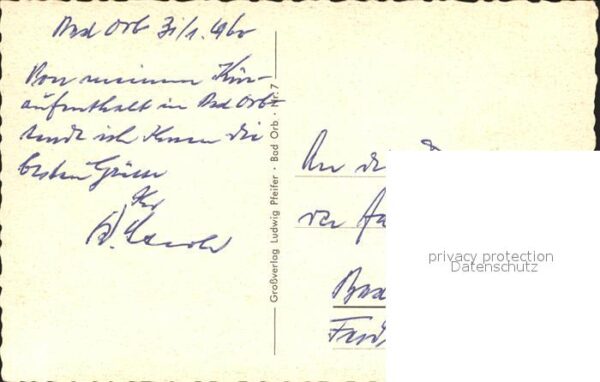 Bad Orb 31/1. 1960
Von meinem Kur-
aufenthalt in Bad Orb
sende ich Ihnen die
besten Grüsse
Ihr
Großverlag Ludwig Pfeifer · Bad Orb · Nr. 7
An die
der
Bad
privacy protection
Datenschutz